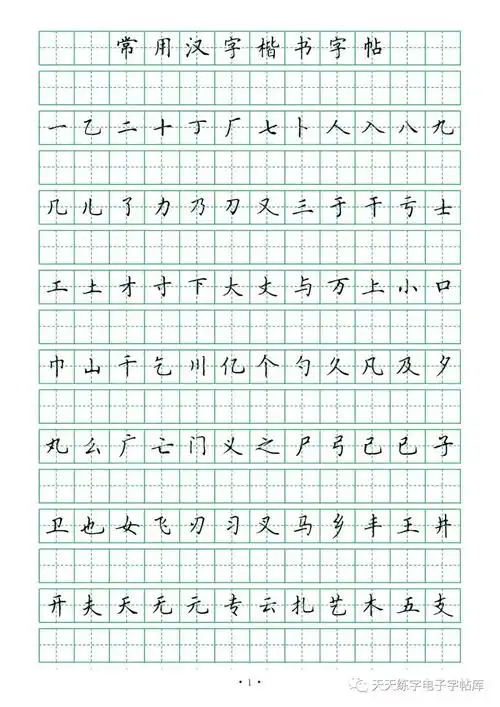 常用汉字楷书字帖
一乙二十丁厂七卜人入八九
几儿了力乃刀又三于干亏士
工土才寸下大丈与万上小口
巾山千乞川亿个勺久凡及夕
丸么广亡门义之尸弓己已子
卫也女飞刃习叉马乡丰王井
开夫天无元专云扎艺木五支
·1·
天天练字电子字帖库